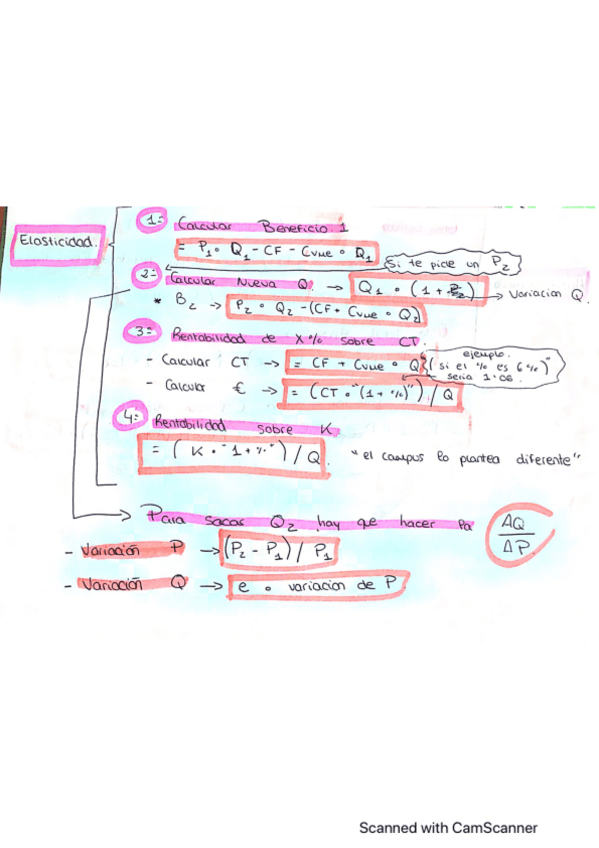 Elasticidad.
1= Calcular Beneficio 1
= P1 · Q1 - CF - Cvue · Q1
Si te pide un P2
2= Calcular Nueva Q. → Q1 · (1 + ) → Variacion Q.
* B2 → P2 · Q2 - (CF + Cvue · Q2)
3= Rentabilidad de X% sobre CT.
- Calcular CT → = CF + Cvue · Q
ejemplo.
(si el % es 6%)"
sería 1.06.
- Calcular € → = (CT · "(1 + %)") / Q
4= Rentabilidad sobre K
= ( K · "1 + %" ) / Q.
"el campus lo plantea diferente"
Para sacar Q2 hay que hacer la ΔQ / ΔP.
- Variación P → (P2 - P1) / P1
- Variación Q → e · variacion de P
Scanned with CamScanner